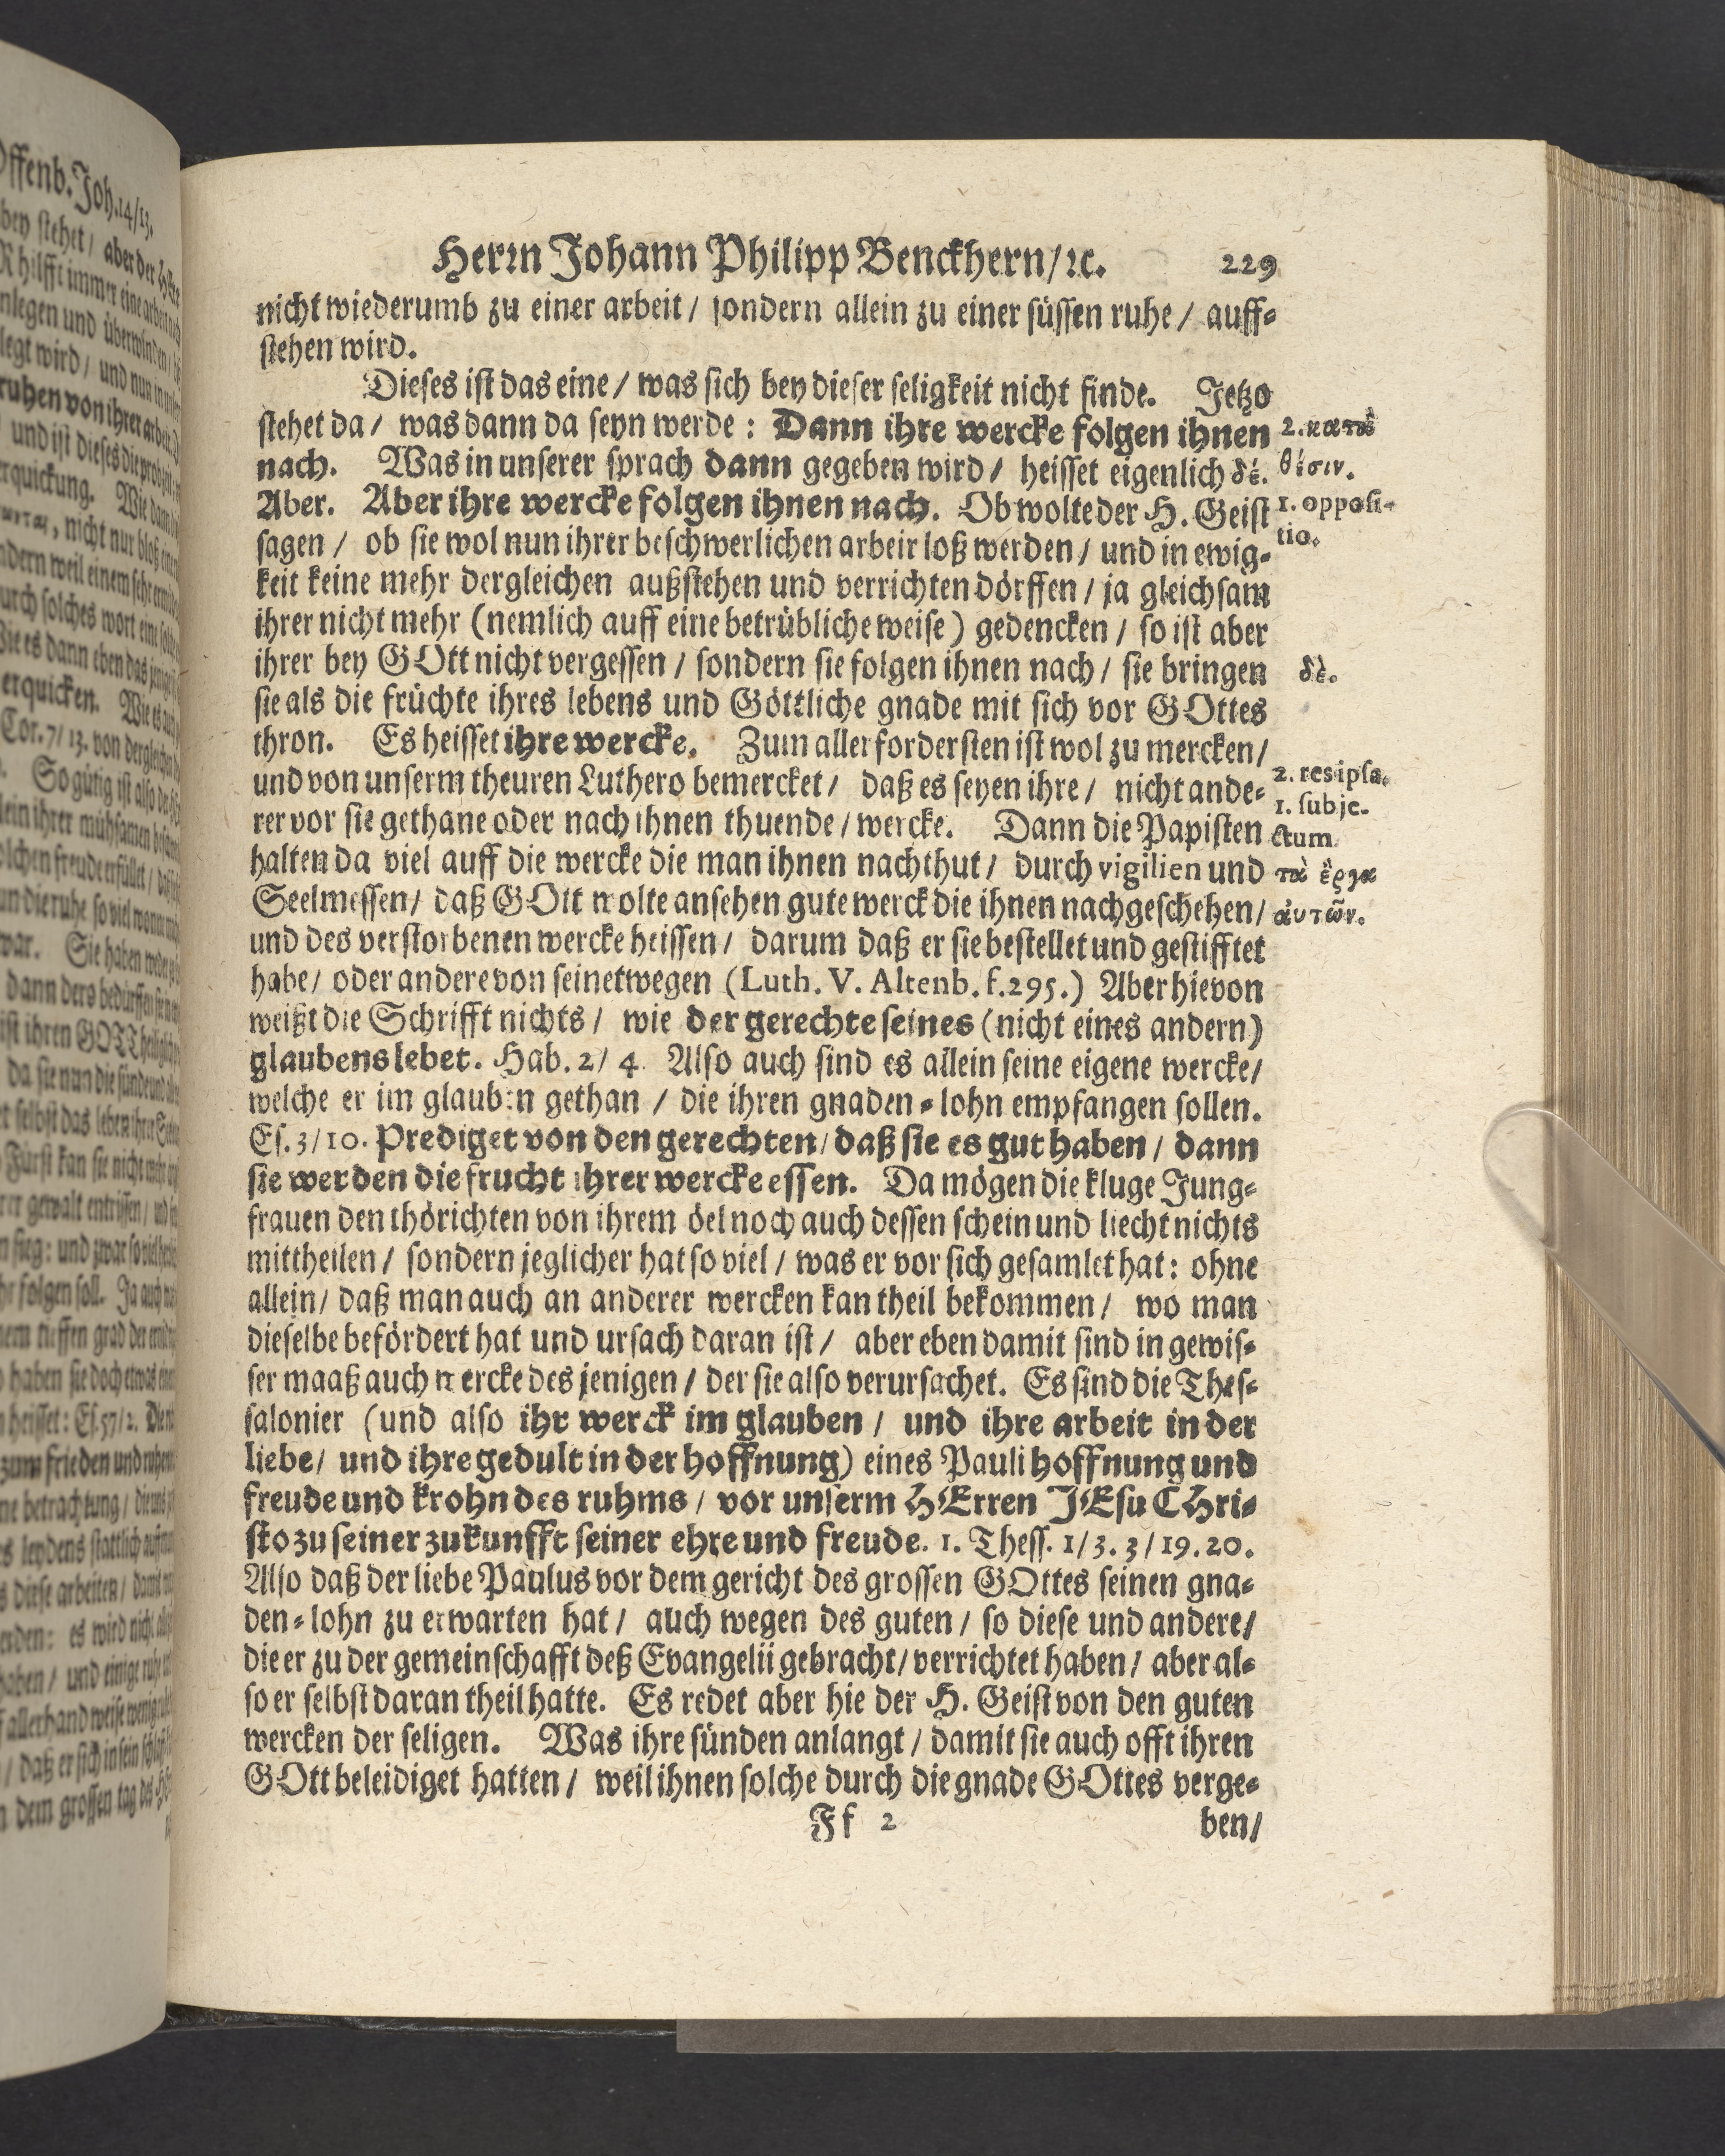 Herrn Johann Philipp Benckhern/ ꝛc. 229
nicht wiederumb zu einer arbeit / sondern allein zu einer süssen ruhe / auff-
stehen wird.
Dieses ist das eine / was sich bey dieser seligkeit nicht finde. Jetzo
stehet da / was dann da seyn werde : Dann ihre wercke folgen ihnen
nach. Was in unserer sprach dann gegeben wird / heisset eigenlich δέ.
Aber. Aber ihre wercke folgen ihnen nach. Ob wolte der H. Geist
sagen / ob sie wol nun ihrer beschwerlichen arbeir loß werden / und in ewig-
keit keine mehr dergleichen außstehen und verrichten dörffen / ja gleichsam
ihrer nicht mehr (nemlich auff eine betrübliche weise) gedencken / so ist aber
ihrer bey GOtt nicht vergessen / sondern sie folgen ihnen nach / sie bringen
sie als die früchte ihres lebens und Göttliche gnade mit sich vor GOttes
thron. Es heisset ihre wercke. Zum allerfordersten ist wol zu mercken /
und von unserm theuren Luthero bemercket / daß es seyen ihre / nicht ande-
rer vor sie gethane oder nach ihnen thuende / wercke. Dann die Papisten
halten da viel auff die wercke die man ihnen nachthut / durch vigilien und
Seelmessen / daß GOtt wolte ansehen gute werck die ihnen nachgeschehen /
und des verstorbenen wercke heissen / darum daß er sie bestellet und gestifftet
habe / oder andere von seinetwegen (Luth. V. Altenb. f. 295.) Aber hievon
weißt die Schrifft nichts / wie der gerechte seines (nicht eines andern)
glaubens lebet. Hab. 2 / 4. Also auch sind es allein seine eigene wercke /
welche er im glauben gethan / die ihren gnaden-lohn empfangen sollen.
Es. 3 / 10. Prediget von den gerechten / daß sie es gut haben / dann
sie werden die frucht ihrer wercke essen. Da mögen die kluge Jung-
frauen den thörichten von ihrem öel noch auch dessen schein und liecht nichts
mittheilen / sondern jeglicher hat so viel / was er vor sich gesamlet hat : ohne
allein / daß man auch an anderer wercken kan theil bekommen / wo man
dieselbe befördert hat und ursach daran ist / aber eben damit sind in gewis-
ser maaß auch wercke des jenigen / der sie also verursachet. Es sind die Thes-
salonier (und also ihr werck im glauben / und ihre arbeit in der
liebe / und ihre gedult in der hoffnung) eines Pauli hoffnung und
freude und krohn des ruhms / vor unserm HErren JEsu CHri-
sto zu seiner zukunfft seiner ehre und freude. 1. Thess. 1 / 3. 3 / 19. 20.
Also daß der liebe Paulus vor dem gericht des grossen GOttes seinen gna-
den-lohn zu erwarten hat / auch wegen des guten / so diese und andere /
die er zu der gemeinschafft deß Evangelii gebracht / verrichtet haben / aber al-
so er selbst daran theil hatte. Es redet aber hie der H. Geist von den guten
wercken der seligen. Was ihre sünden anlangt / damit sie auch offt ihren
GOtt beleidiget hatten / weil ihnen solche durch die gnade GOttes verge-
Ff 2 ben /
2. κατὰ
θέσιν.
1. opposi-
tio.
δὲ.
2. res ipsa.
1. subje-
ctum
τὰ ἔργα
ἀυτῶν.
Offenb. Joh. 14 / 13.
bey stehet / aber der
hilfft immer eine arbeit
nlegen und überwinden /
legt wird / und nun in
ruhen von ihrer arbeit.
und ist dieses die
rquickung. Wie dann
, nicht nur bloß einen
ndern weil einem sehr
urch solches wort eine
ie es dann eben das
erquicken. Wie es
Cor. 7 / 13. von dergleichen
So gütig ist also der
lein ihrer mühsamen
olchen freude erfüllet /
un die ruhe so viel
war. Sie haben
dann dero bedürffen
ist ihren GOTT
da sie nun die sünde und
er selbst das leben ihrer
Fürst kan sie nicht mehr
rer gewalt entrissen /
n sieg : und zwar so viel
he folgen soll. Ja auch
nem tieffen grad der
haben sie doch etwas
heisset : Es. 57 / 2. Die
zum frieden und ruhen
ne betrachtung /
s leydens stattlich
s diese arbeiten / damit
erden : es wird nicht
haben / und einige ruhe
allerhand weise
/ daß er sich in sein
n dem grossen tag des